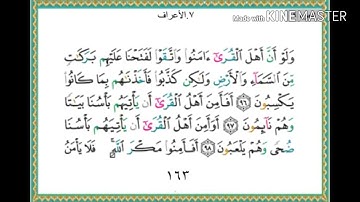 ٧. الأعراف
Made with KINEMASTER
وَلَوْ أَنَّ أَهْلَ الْقُرَىٰٓ ءَامَنُوا۟ وَاتَّقَوْا۟ لَفَتَحْنَا عَلَيْهِم بَرَكَٰتٍ
مِّنَ السَّمَآءِ وَالْأَرْضِ وَلَٰكِن كَذَّبُوا۟ فَأَخَذْنَٰهُم بِمَا كَانُوا۟
يَكْسِبُونَ ٩٦ أَفَأَمِنَ أَهْلُ الْقُرَىٰٓ أَن يَأْتِيَهُم بَأْسُنَا بَيَٰتًا
وَهُمْ نَآئِمُونَ ٩٧ أَوَأَمِنَ أَهْلُ الْقُرَىٰٓ أَن يَأْتِيَهُم بَأْسُنَا
ضُحًى وَهُمْ يَلْعَبُونَ ٩٨ أَفَأَمِنُوا۟ مَكْرَ اللَّهِ ۚ فَلَا يَأْمَنُ
١٦٣